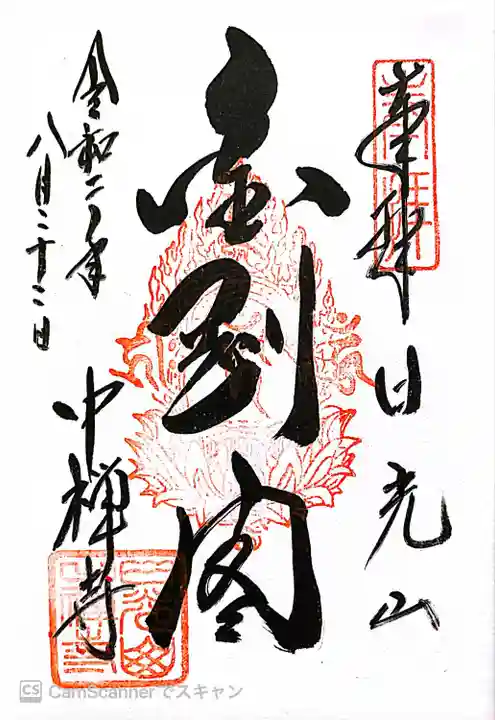 奉拝 日光山
金剛閣
令和二年
八月二十二日
中禅寺
CS CamScannerでスキャン